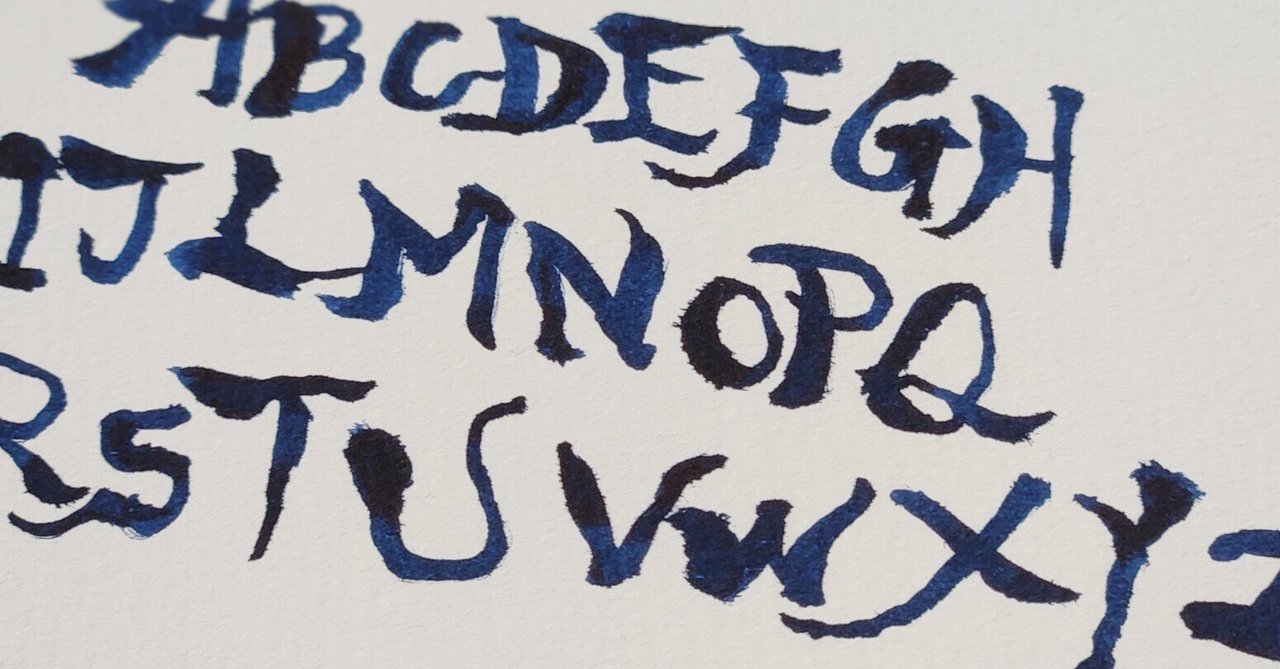 ABCDEFGH
IJLMNOPQ
RSTUVWXYZ